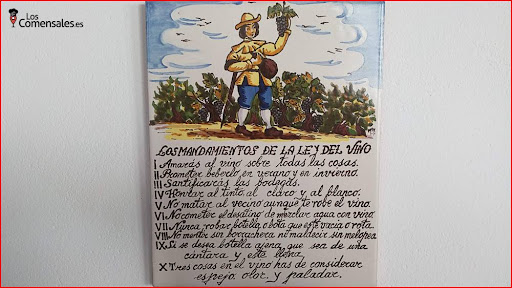 Los
Comensales.es
LOS MANDAMIENTOS DE LA LEY DEL VINO
I Amarás al vino sobre todas las cosas.
II Prometer beberlo en verano y en invierno.
III Santificarás las bodegas.
IV Honrar al tinto, al claro y al blanco.
V No matar al vecino aunque te robe el vino.
VI No cometer el desatino de mezclar agua con vino
VII Nunca robar botella o bota que esté vacía o rota.
VIII No mentir sin borrachera ni maldecir sin melopea.
IX Si se desea botella ajena, que sea de una
cántara y esté llena.
X Tres cosas en el vino has de considerar
espejo, olor, y paladar.